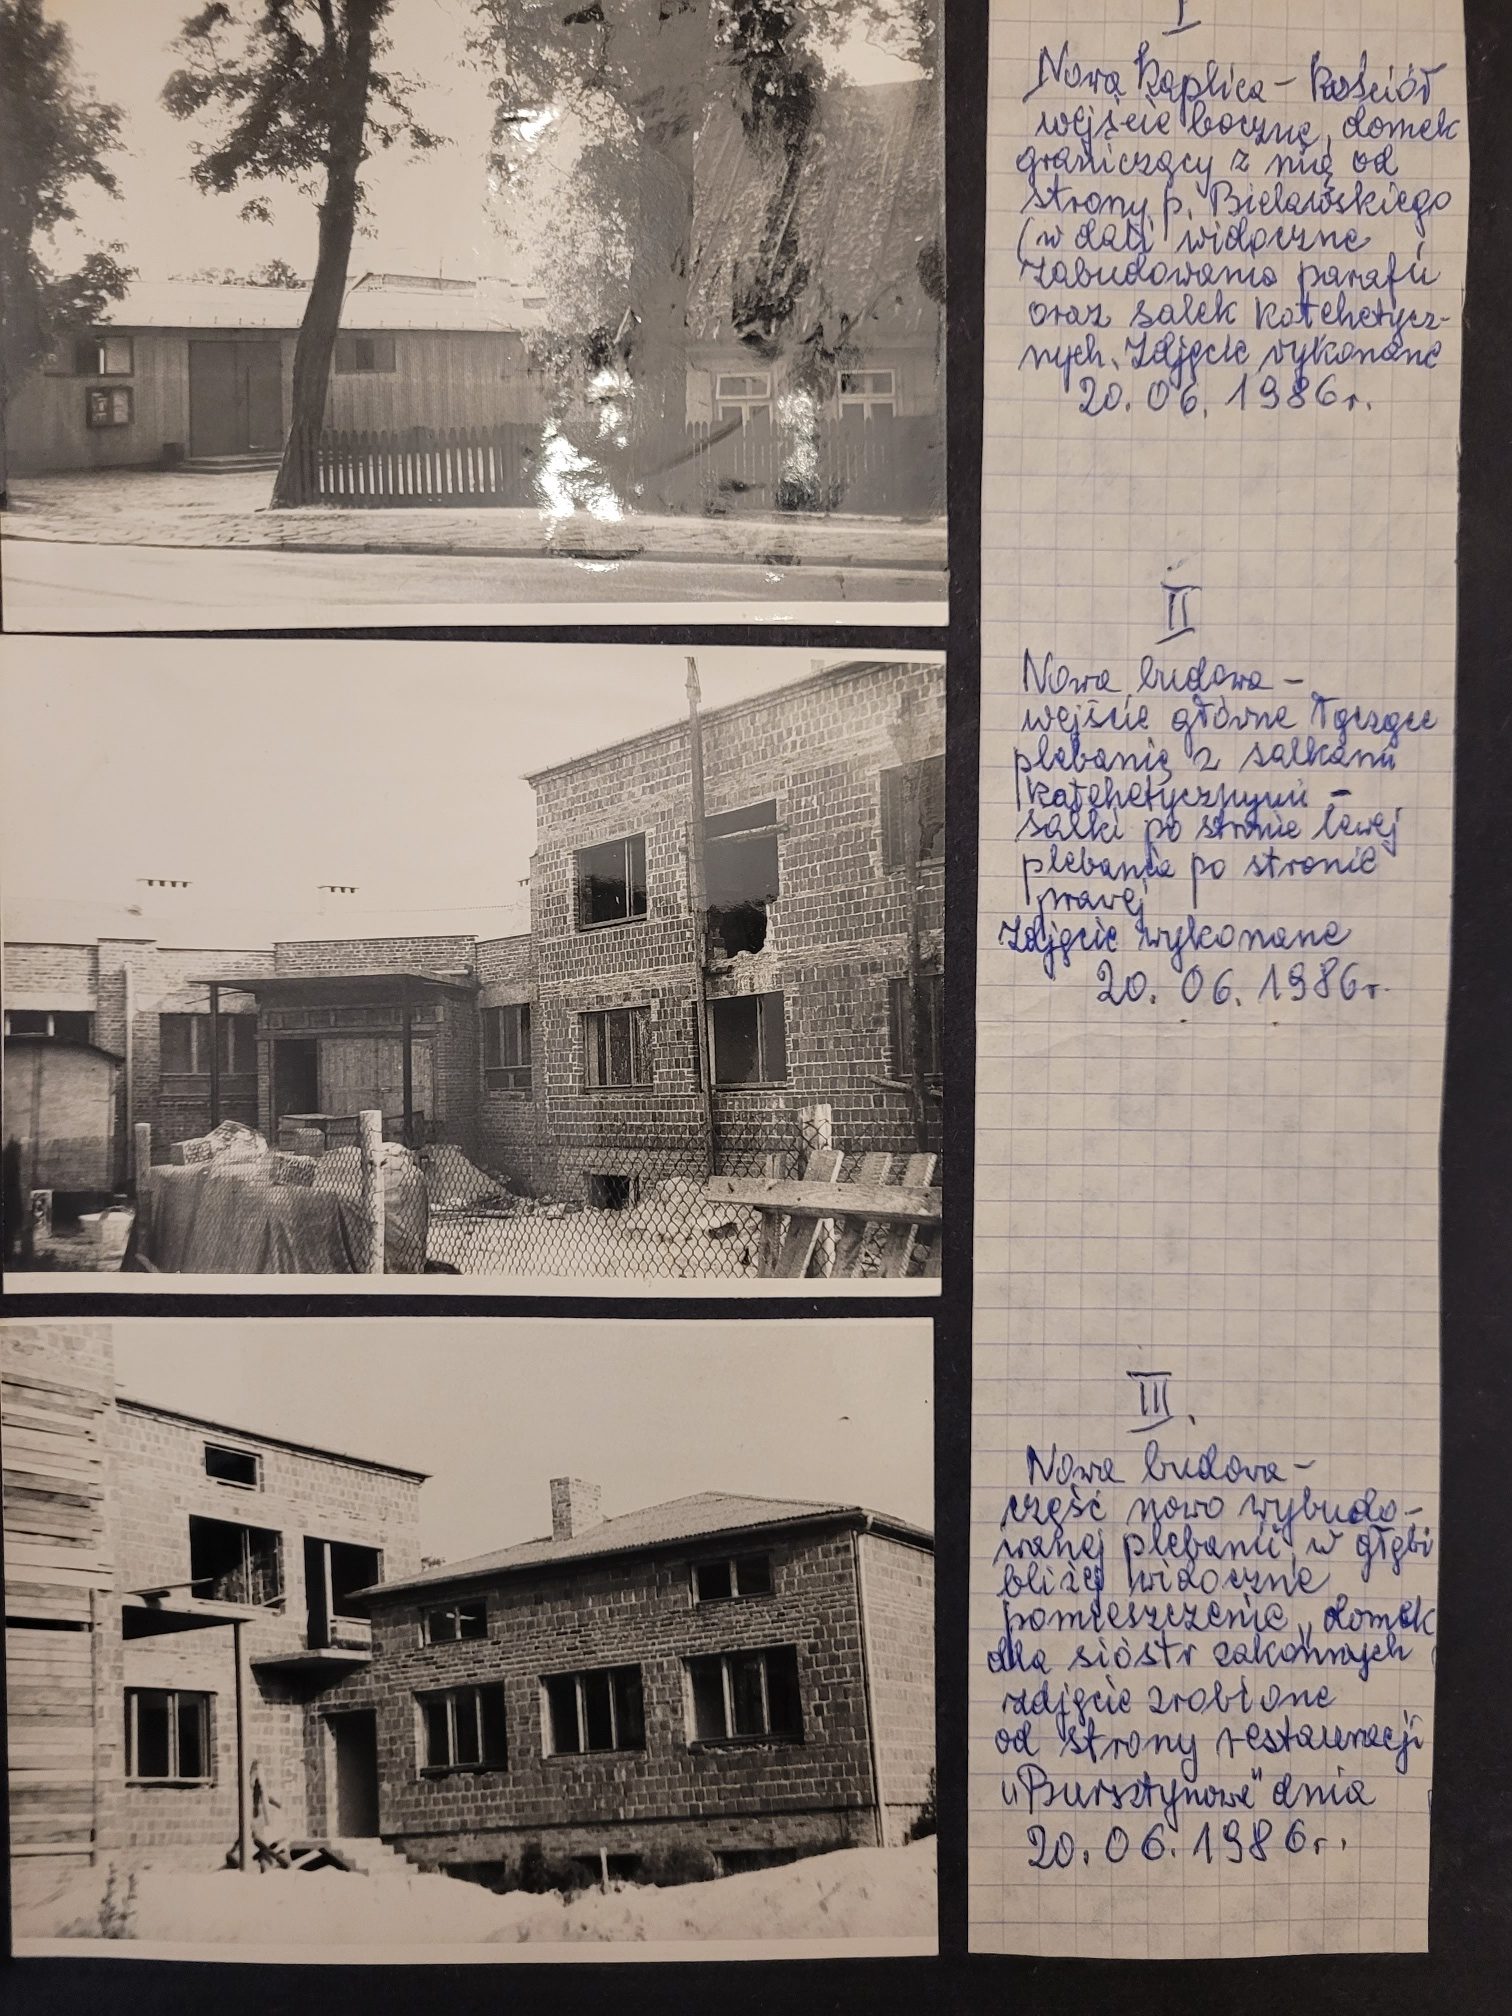 I
Nowa Kaplica - Kościół
wejście boczne, domek
graniczący z nią od
strony p. Bielawskiego
(w dali widoczne
zabudowania parafii
oraz salek katehetycz-
nych. Zdjęcie wykonane
20.06.1986r.
II
Nowa budowa -
wejście główne łączące
plebanię z salkami
katehetycznymi -
salki po stronie lewej
plebania po stronie
prawej
Zdjęcie wykonane
20.06.1986r.
III.
Nowa budowa -
część nowo wybudo-
wanej plebanii, w głębi
bliżej widoczne
pomieszczenie, domek
dla sióstr zakonnych
zdjęcie zrobione
od strony restauracji
"Bursztynowa" dnia
20.06.1986r.